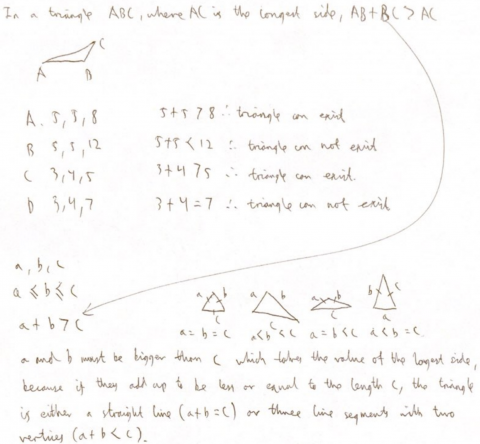 In a triangle ABC, where AC is the longest side, AB+BC > AC
C
A B
A. 5, 5, 8 5+5 > 8 ∴ triangle can exist
B 5, 5, 12 5+5 < 12 ∴ triangle can not exist
C 3, 4, 5 3+4 > 5 ∴ triangle can exist.
D 3, 4, 7 3+4 = 7 ∴ triangle can not exist
a, b, c
a ≤ b ≤ c
a + b > c
a b c a b c a b c a b c a
a=b=c a<b<c a=b<c a<b=c
a and b must be bigger than c which takes the value of the longest side,
because if they add up to be less or equal to the length c, the triangle
is either a straight line (a+b=c) or three line segments with two
vertices (a+b<c).